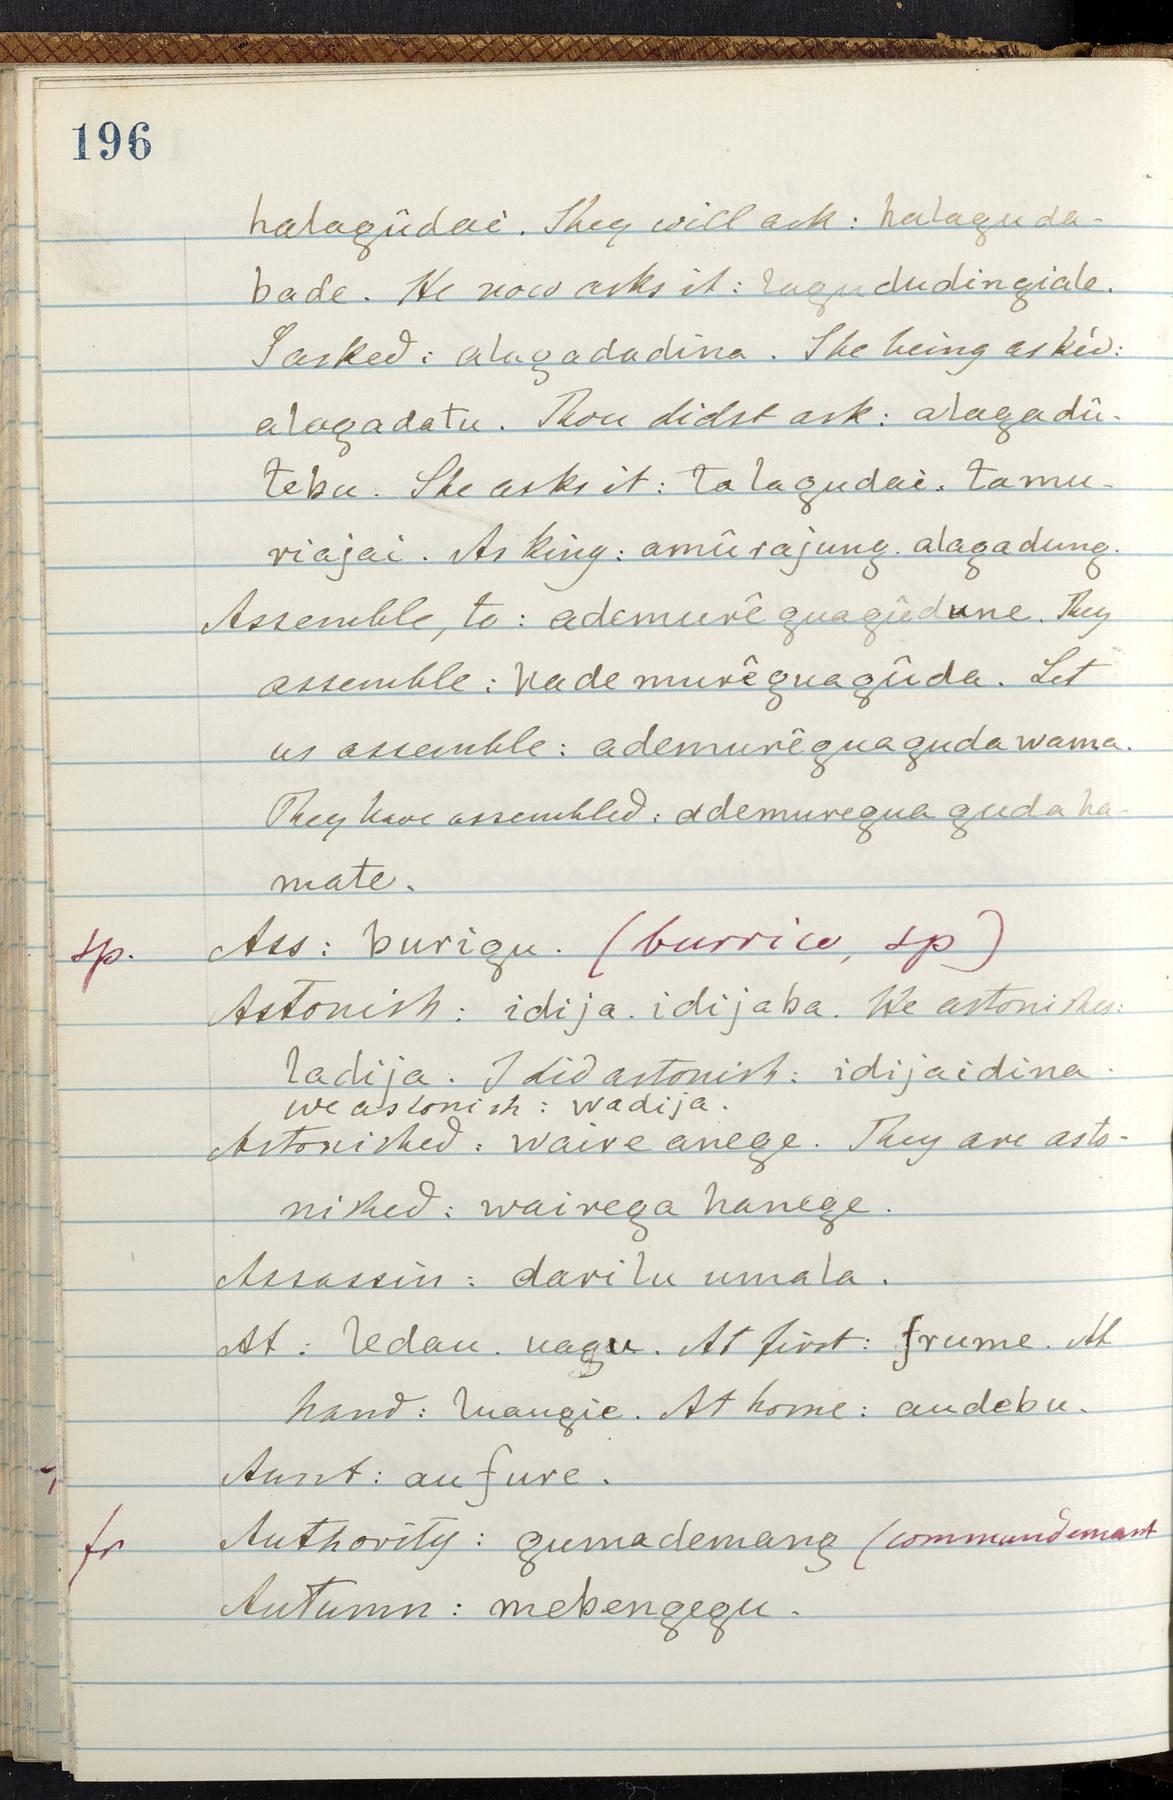 196
halagûdai. They will ask: halaguda-
bade. He now asks it: lagududingiale.
I asked: alagadadina. She being asked:
alagadatu. Thou didst ask: alagadû-
tebu. She asks it: talagudai. tamu-
riajai. Asking: amûrajung. alagadung.
Assemble, to: ademurêguagûdune. They
assemble: hademurêguagûda. Let
us assemble: ademurêguaguda wama.
They have assembled: ademuregua guda ha-
mate.
sp. Ass: burigu. (burrico, sp)
Astonish: idija. idijaba. He astonishes:
ladija. I did astonish: idijaidina.
we astonish: wadija.
Astonished: waire anege. They are asto-
nished: wairega hanege.
Assassin: darilu umala.
At: ledau. uagu. At first: frume. At
hand: luaugie. At home: audebu.
Aunt: aufure.
fr Authority: gumademang (commandemant
Autumn: mebengegu.